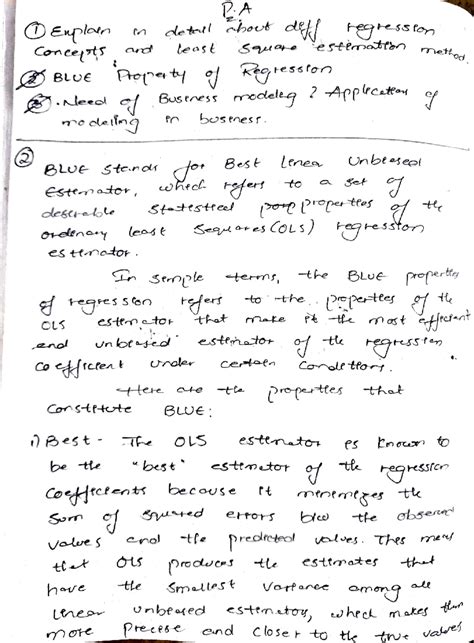 P.A
① Explain in detail about diff regression
Concepts and least square estimation method.
② BLUE Property of Regression
③. Need of Business modeling? Application of
modeling in business.
② BLUE stands for Best Linear Unbiased
Estimator, which refers to a set of
desirable statistical properties of the
ordinary least Sequares (OLS) regression
estimator.
In simple terms, the BLUE properties
of regression refers to the properties of the
OLS estimator that make it the most efficient
and unbiased estimator of the regression
coefficient under certain conditions.
Here are the properties that
Constitute BLUE:
i) Best - The OLS estimator is known to
be the "best" estimator of the regression
Coefficients because it minimizes the
Sum of squared errors b/w the observed
values and the predicted values. This means
that OLS produces the estimates that
have the smallest variance among all
linear unbiased estimators, which makes them
more Precise and closer to the true values